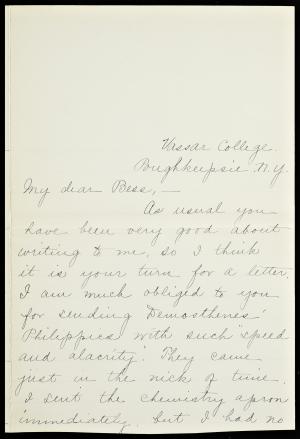 Vassar College.
Poughkeepsie. N.Y.
My dear Bess, —
As usual you
have been very good about
writing to me, so I think
it is your turn for a letter.
I am much obliged to you
for sending "Demosthenes'
Philippics with such "speed
and alacrity". They came
just in the nick of time.
I sent the chemistry apron
immediately, but I had no